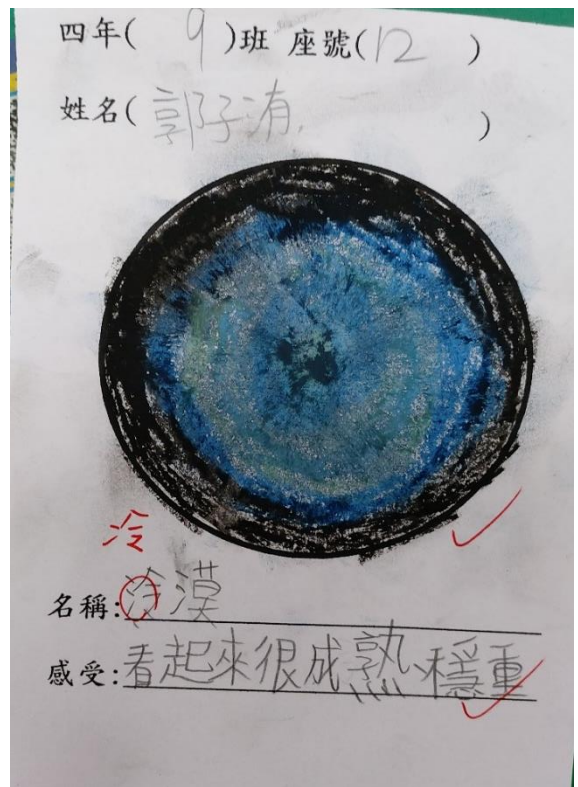 四年( 9 )班 座號(12 )
姓名( 郭子洧. )
冷
名稱:冷漠
感受:看起來很成熟、穩重